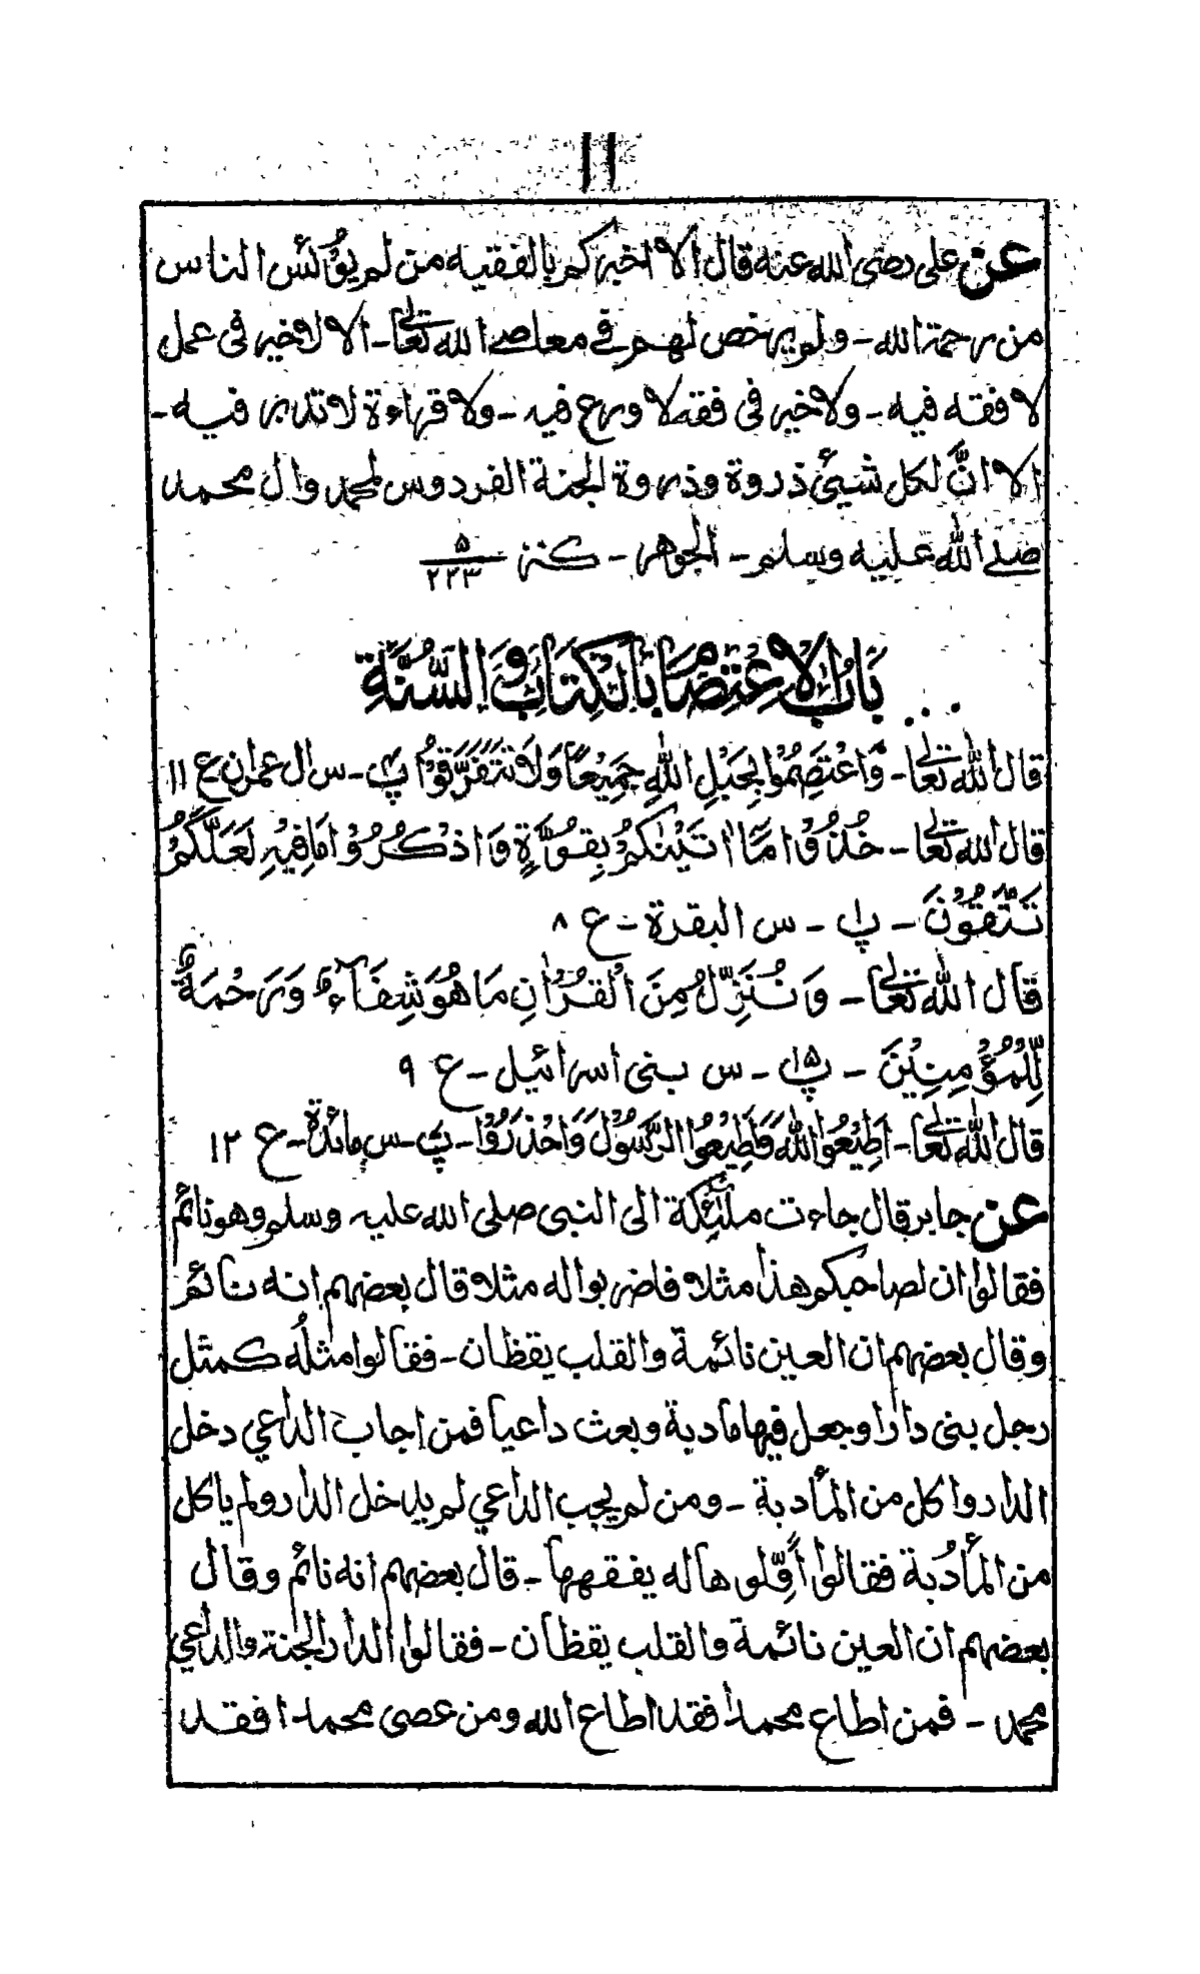 ١١
عن علی رضی الله عنه قال الا اخبركم بالفقیه من لم یؤئس الناس
من رحمة الله - ولم یرخص لهم فی معاصی الله تعالیٰ - الا لا خیر فی عمل
لا فقه فیه - ولا خیر فی فقه لا ورع فیه - ولا قراءة لا تدبر فیه -
الا انَّ لكل شیئ ذروة وذروة الجنة الفردوس لمحمد وال محمد
صلی الله علیه وسلم - الجوهر - كنز ٥/٢٢٣
بَابُ الاِعْتِصَامِ بِالْكِتَابِ وَالسُّنَّةِ
قال الله تعالیٰ - وَاعْتَصِمُوْا بِحَبْلِ اللهِ جَمِیْعًا وَلَا تَفَرَّقُوْا پ٤ - س ال عمران ع ١١
قال الله تعالیٰ - خُذُوْا مَا اٰتَیْنٰكُمْ بِقُوَّةٍ وَاذْكُرُوْا مَا فِیْهِ لَعَلَّكُمْ
تَتَّقُوْنَ - پ١ - س البقرة - ع ٨
قال الله تعالیٰ - وَنُنَزِّلُ مِنَ الْقُرْاٰنِ مَا هُوَ شِفَآءٌ وَرَحْمَةٌ
لِّلْمُؤْمِنِیْنَ - پ١٥ - س بنی اسرائیل - ع ٩
قال الله تعالیٰ - اَطِیْعُوا اللهَ وَاَطِیْعُوا الرَّسُوْلَ وَاحْذَرُوْا - پ٧ - س مائدة - ع ١٢
عن جابر قال جاءت ملٰئكة الی النبی صلی الله علیه وسلم وهو نائم
فقالوا ان لصاحبكم هذا مثلا فاضربوا له مثلا قال بعضهم انه نائم
وقال بعضهم ان العین نائمة والقلب یقظان - فقالوا مثلُه كمثل
رجل بنی دارا وجعل فیها مادبة وبعث داعیا فمن اجاب الداعی دخل
الدار واكل من المأدبة - ومن لم یجب الداعی لم یدخل الدار ولم یاكل
من المأدُبة فقالوا أَوِّلوها له یفقهها - قال بعضهم انه نائم وقال
بعضهم ان العین نائمة والقلب یقظان - فقالوا الدار الجنة والداعی
محمد - فمن اطاع محمدا فقد اطاع الله ومن عصی محمدا فقد